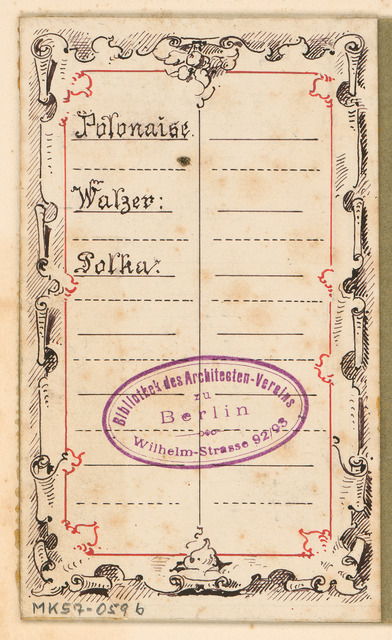 Polonaise.
Walzer:
Polka:
Bibliothek des Architecten-Vereins
zu
Berlin
Wilhelm-Strasse 92/93
MK57-059b